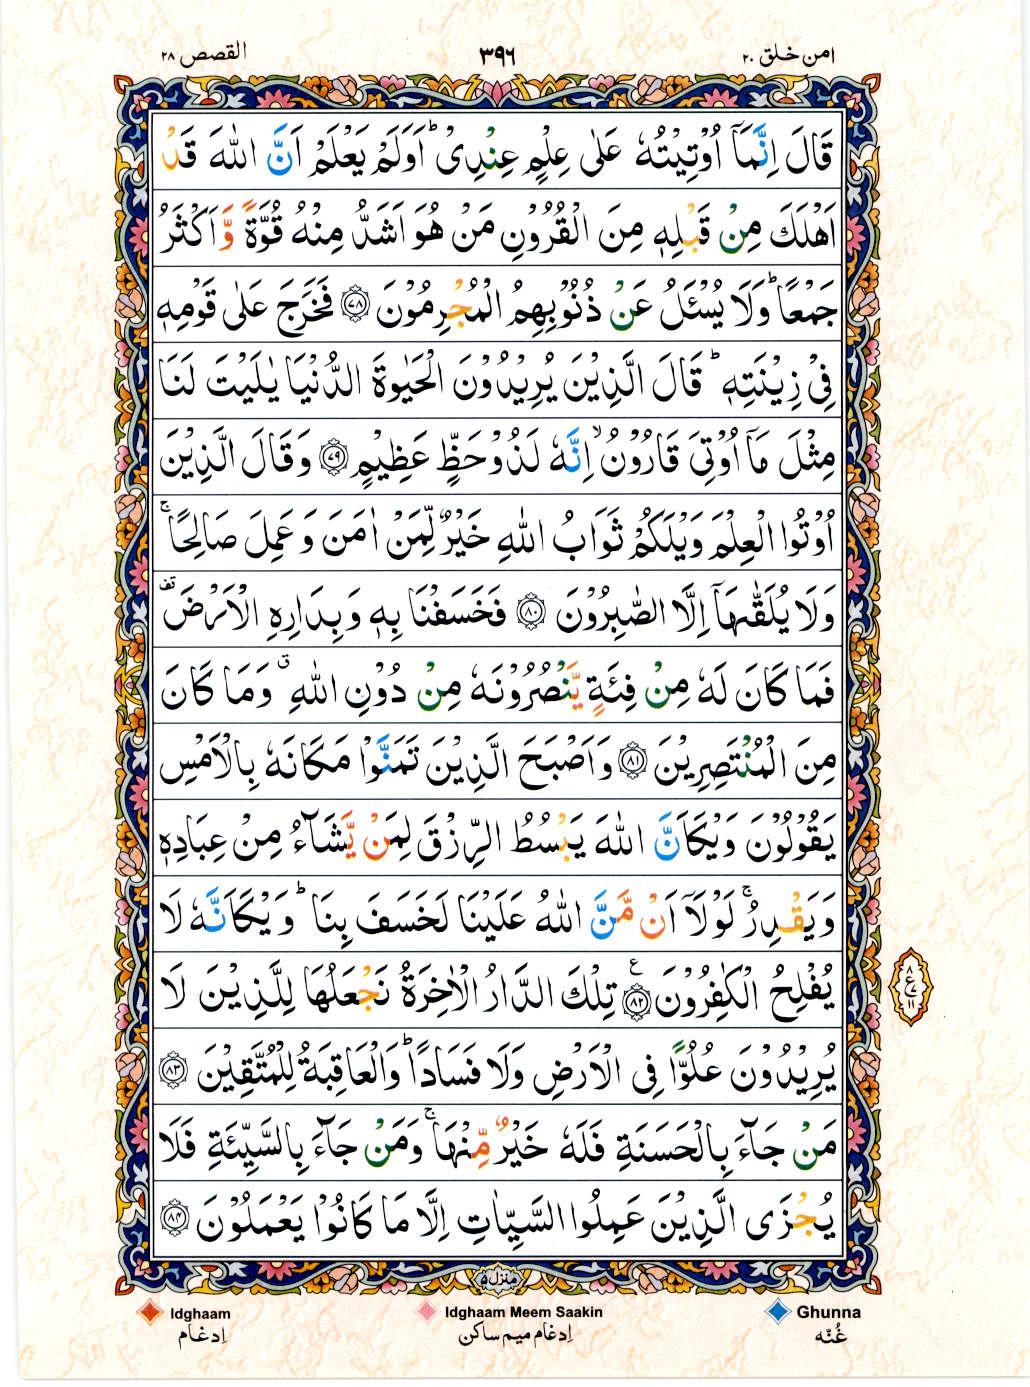 القصص ٢٨
٣٩٦
امن خلق ٢٠
قَالَ اِنَّمَاۤ اُوْتِيْتُهٗ عَلٰى عِلْمٍ عِنْدِیْ ؕ اَوَلَمْ يَعْلَمْ اَنَّ اللّٰهَ قَدْ
اَهْلَكَ مِنْ قَبْلِهٖ مِنَ الْقُرُوْنِ مَنْ هُوَ اَشَدُّ مِنْهُ قُوَّةً وَّ اَكْثَرُ
جَمْعًا ؕ وَلَا يُسْـَٔلُ عَنْ ذُنُوْبِهِمُ الْمُجْرِمُوْنَ ﴿٧٨﴾ فَخَرَجَ عَلٰى قَوْمِهٖ
فِیْ زِيْنَتِهٖ ؕ قَالَ الَّذِيْنَ يُرِيْدُوْنَ الْحَيٰوةَ الدُّنْيَا يٰلَيْتَ لَنَا
مِثْلَ مَاۤ اُوْتِیَ قَارُوْنُ ۙ اِنَّهٗ لَذُوْ حَظٍّ عَظِيْمٍ ﴿٧٩﴾ وَقَالَ الَّذِيْنَ
اُوْتُوا الْعِلْمَ وَيْلَكُمْ ثَوَابُ اللّٰهِ خَيْرٌ لِّمَنْ اٰمَنَ وَ عَمِلَ صَالِحًا ۚ
وَلَا يُلَقّٰىهَاۤ اِلَّا الصّٰبِرُوْنَ ﴿٨٠﴾ فَخَسَفْنَا بِهٖ وَبِدَارِهِ الْاَرْضَ قف
فَمَا كَانَ لَهٗ مِنْ فِئَةٍ يَّنْصُرُوْنَهٗ مِنْ دُوْنِ اللّٰهِ ق وَمَا كَانَ
مِنَ الْمُنْتَصِرِيْنَ ﴿٨١﴾ وَاَصْبَحَ الَّذِيْنَ تَمَنَّوْا مَكَانَهٗ بِالْاَمْسِ
يَقُوْلُوْنَ وَيْكَاَنَّ اللّٰهَ يَبْسُطُ الرِّزْقَ لِمَنْ يَّشَآءُ مِنْ عِبَادِهٖ
وَيَقْدِرُ ۚ لَوْلَاۤ اَنْ مَّنَّ اللّٰهُ عَلَيْنَا لَخَسَفَ بِنَا ؕ وَيْكَاَنَّهٗ لَا
يُفْلِحُ الْكٰفِرُوْنَ ﴿٨٢﴾ ع تِلْكَ الدَّارُ الْاٰخِرَةُ نَجْعَلُهَا لِلَّذِيْنَ لَا
٨
ع
٧
١١
يُرِيْدُوْنَ عُلُوًّا فِی الْاَرْضِ وَلَا فَسَادًا ؕ وَالْعَاقِبَةُ لِلْمُتَّقِيْنَ ﴿٨٣﴾
مَنْ جَآءَ بِالْحَسَنَةِ فَلَهٗ خَيْرٌ مِّنْهَا ۚ وَمَنْ جَآءَ بِالسَّيِّئَةِ فَلَا
يُجْزَى الَّذِيْنَ عَمِلُوا السَّيِّاٰتِ اِلَّا مَا كَانُوْا يَعْمَلُوْنَ ﴿٨٤﴾
منزل ٥
Idghaam
Idghaam Meem Saakin
Ghunna
اِدغام
اِدغام میم ساکن
غُنّه